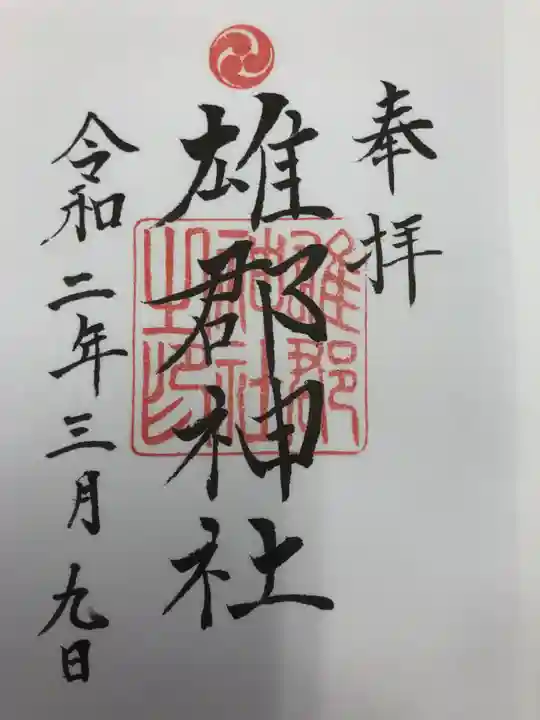 奉拝
雄郡神社
雄郡
神社
之印
令和二年三月九日